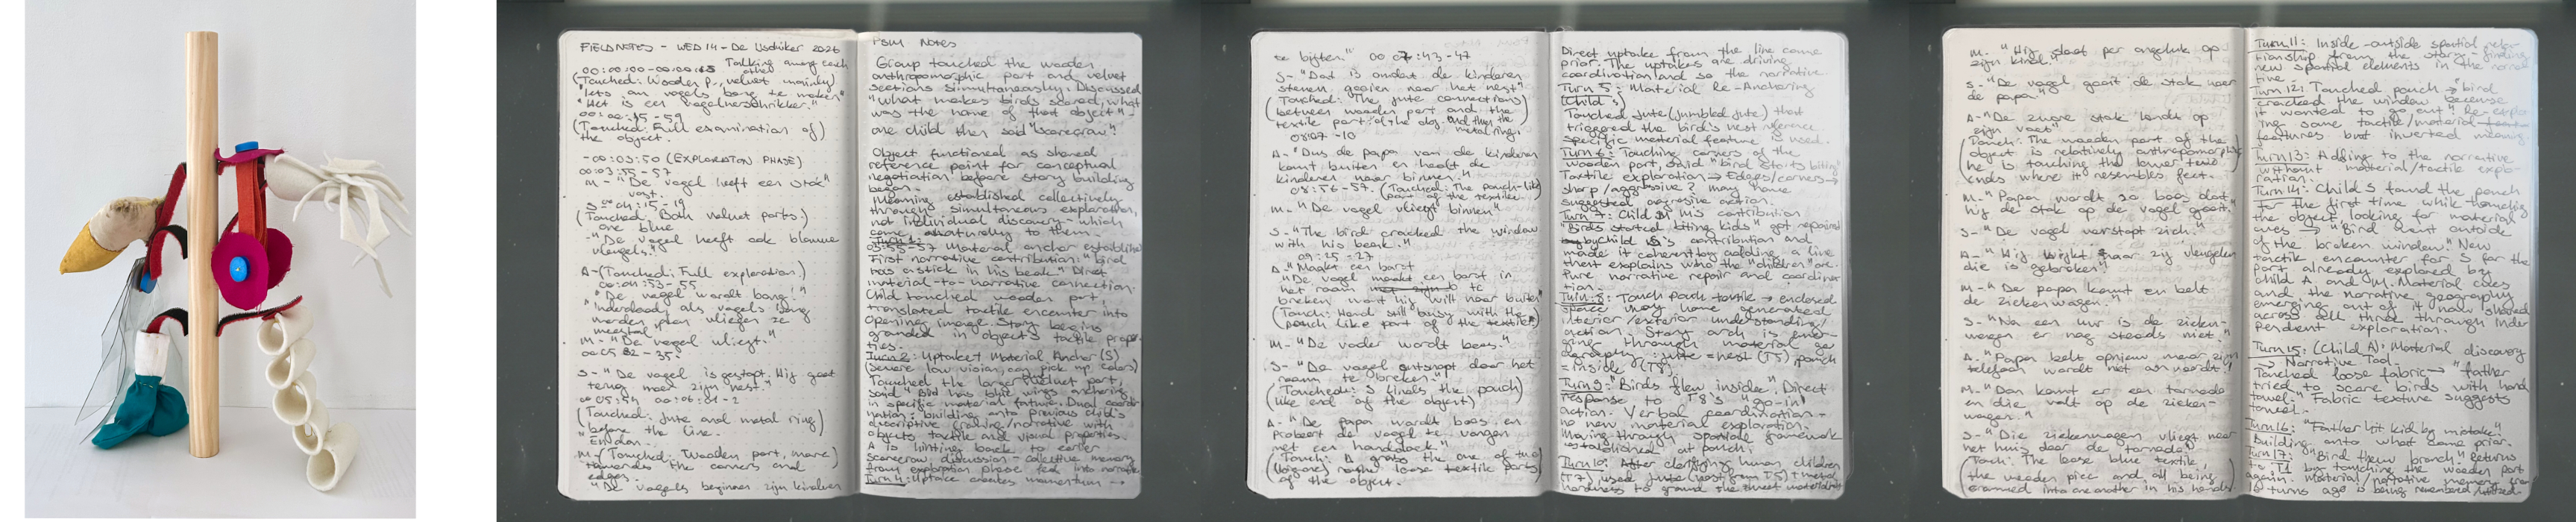 FIELDNOTES - WED 14 - De IJsduiker 2026
00:00:00-00:00:15 Talking among each other
(Touched: Wooden P., velvet mainly)
"Lets om vogels bang te maken"
"Het is een vogelverschrikker."
00:00:15 - 59
(Touched: Full examination of)
the object.
-00:03:50 (EXPLORATION PHASE)
00:03:55-57
M - "De vogel heeft een stok"
vast.
S - 00:04:15-19
(Touched: Both velvet parts)
one blue
- "De vogel heeft ook blauwe
vleugels."
A - (Touched: Full exploration.)
00:04:53 - 55
"De vogel wordt bang!"
"Inderdaad, als vogels bang
worden, dan vliegen ze
meestal"
M - "De vogel vliegt."
S - "De vogel is gestopt. Hij gaat
terug naar zijn nest."
(Touched: Jute and metal ring)
before the line.
"En dan..
M - (Touched: Wooden part, more)
towards the corners and
edges.
"De vogels beginnen zijn kinderen
PSM Notes
Group touched the wooden
anthropomorphic part and velvet
sections simultaneously. Discussed
"what makes birds scared, what
was the name of that object" -
one child then said "scarecrow".
Object functioned as shared
reference point for conceptual
negotiation before story building
began.
Meaning established collectively
through simultaneous exploration,
not individual discovery - which
came naturally to them.
Turn 1:
Material anchor established
First narrative contribution: "bird
has a stick in his beak" Direct
material-to-narrative connection.
Child touched wooden part,
translated tactile encounter into
opening image. Story begins
grounded in object's tactile proper-
ties.
Turn 2: Uptake + Material Anchor (S)
(Severe low vision, can pick up colors)
Touched the larger velvet part,
said "Bird has blue wings" anchoring
in specific material feature. Dual coordi-
nation: building onto previous child's
descriptive framing/narrative with
objects tactile and visual properties.
A is hinting back to earlier
scarecrow discussion - collective memory
from exploration phase feed into narrative
Turn 4: Uptake creates momentum →
te bijten." 00 07:43-47
S - "Dat is omdat de kinderen
stenen gooien naar het nest"
(Touched: The jute connections)
between wooden part and the
textile part of the obj. and then the
metal ring.
08:07 - 10
A - "Dus de papa van de kinderen
komt buiten en haalt de
kinderen naar binnen."
08:56-57. (Touched: The pouch-like)
part of the textile.
M - "De vogel vliegt binnen"
S - "The bird cracked the window
with his beak."
09:25 - 27
A - "Maakt een barst
"De vogel maakt een barst in
het raam te
breken want hij will naar buiten"
(Touch: Hand still busy with the)
pouch like part of the textile
M - "De vader wordt boos."
S - "De vogel ontsnapt door het
raam te breken."
(Touched: S finds the pouch)
(like end of the object)
A - "De papa wordt boos en
probeert de vogel te vangen
met een handdoek."
(Touch: A grabs the one of two)
loose textile parts
of the object.
Direct uptake from the line came
prior. The uptakes are driving
coordination and so the narrative.
Turn 5: Material Re-Anchoring
(Child S)
Touched jute (jumbled jute) that
triggered the bird's nest reference
specific material feature used.
Turn 6: Touching corners of the
wooden part, said "bird starts biting"
Tactile exploration → Edges/corners →
sharp/aggressive? may have
suggested aggressive action.
Turn 7: Child M his contribution
"Birds started biting kids" got repaired
by child S's contribution and
made it coherent by adding a line
that explains who the "children" are.
Pure narrative repair and coordina-
tion.
Turn 8: Touch pouch textile → enclosed
space may have generated
interior/exterior understanding/
action. Story and is emer-
ging through material geo
graphy: jute = nest (T5), pouch
= inside (T8).
Turn 9: "Birds flew inside". Direct
response to T8's "go in"
action. Verbal coordination -
no new material exploration.
Moving through spatial framework
established at pouch.
Turn 10: After clarifying human children
(T7), used jute (nest from T5) + metal
hardness to ground the
M - "Hij slaat per ongeluk op
zijn kind."
S - "De vogel gooit de stok naar
de papa."
A - "De zware stok landt op
zijn voet"
(Touch: The wooden part of the
object is relatively anthropomorphic
he is touching the lower two
ends where it resembles feet.
M - "Papa wordt zo boos dat
hij de stok op de vogel gooit."
S - "De vogel verstopt zich."
A - "Hij kijkt naar zijn vleugelen
die is gebroken."
M - "De papa komt en belt
de ziekenwagen."
S - "Na een uur is de zieken-
wagen er nog steeds niet."
A - "Papa belt opnieuw maar zijn
telefoon wordt niet aanvaardt."
M - "Dan komt er een tornado
en die valt op de zieken-
wagen."
S - "Die ziekenwagen vliegt naar
het huis door de tornado."
(Touch: The loose blue textile,
the wooden piece and all being
crammed into one another in his hands)
Turn 11: Inside-outside spatial rela-
tionship from the story - finding
new spatial elements in the narra
tive.
Turn 12: Touched pouch → "bird
cracked the window because
it wanted to go out" Re-explo
ring same tactile/material
features but inverted meaning
Turn 13: Adding to the narrative
without material/tactile explo-
ration.
Turn 14: Child S found the pouch
for the first time while handling
the object, looking for material
cues → "Bird went outside
of the broken window." New
tactile encounter for S for the
part already explored by
child A and M. Material cues
and the narrative geography
emerging out of it now shared
across all three through inde
pendent exploration.
Turn 15: (Child A): Material discovery
→ Narrative Tool.
Touched loose fabric → "father
tried to scare birds with hand
towel." Fabric texture suggests
towel.
Turn 16: "Father hit kid by mistake"
Building onto what came prior.
Turn 17: "Bird threw branch" Returns
to T1 by touching the wooden part
again. Material/narrative memory from
turns ago is being remembered